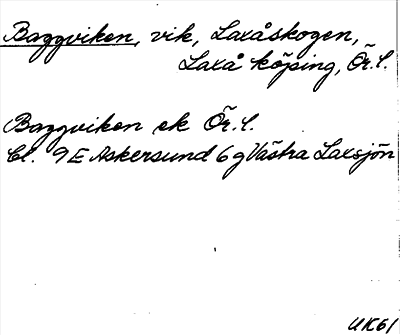 Baggviken, vik, Laxåskogen,
Laxå köping, Ör. l.
Baggviken ek Ör. l.
Bl. 9E Askersund 6g Västra Laxsjön
UK61